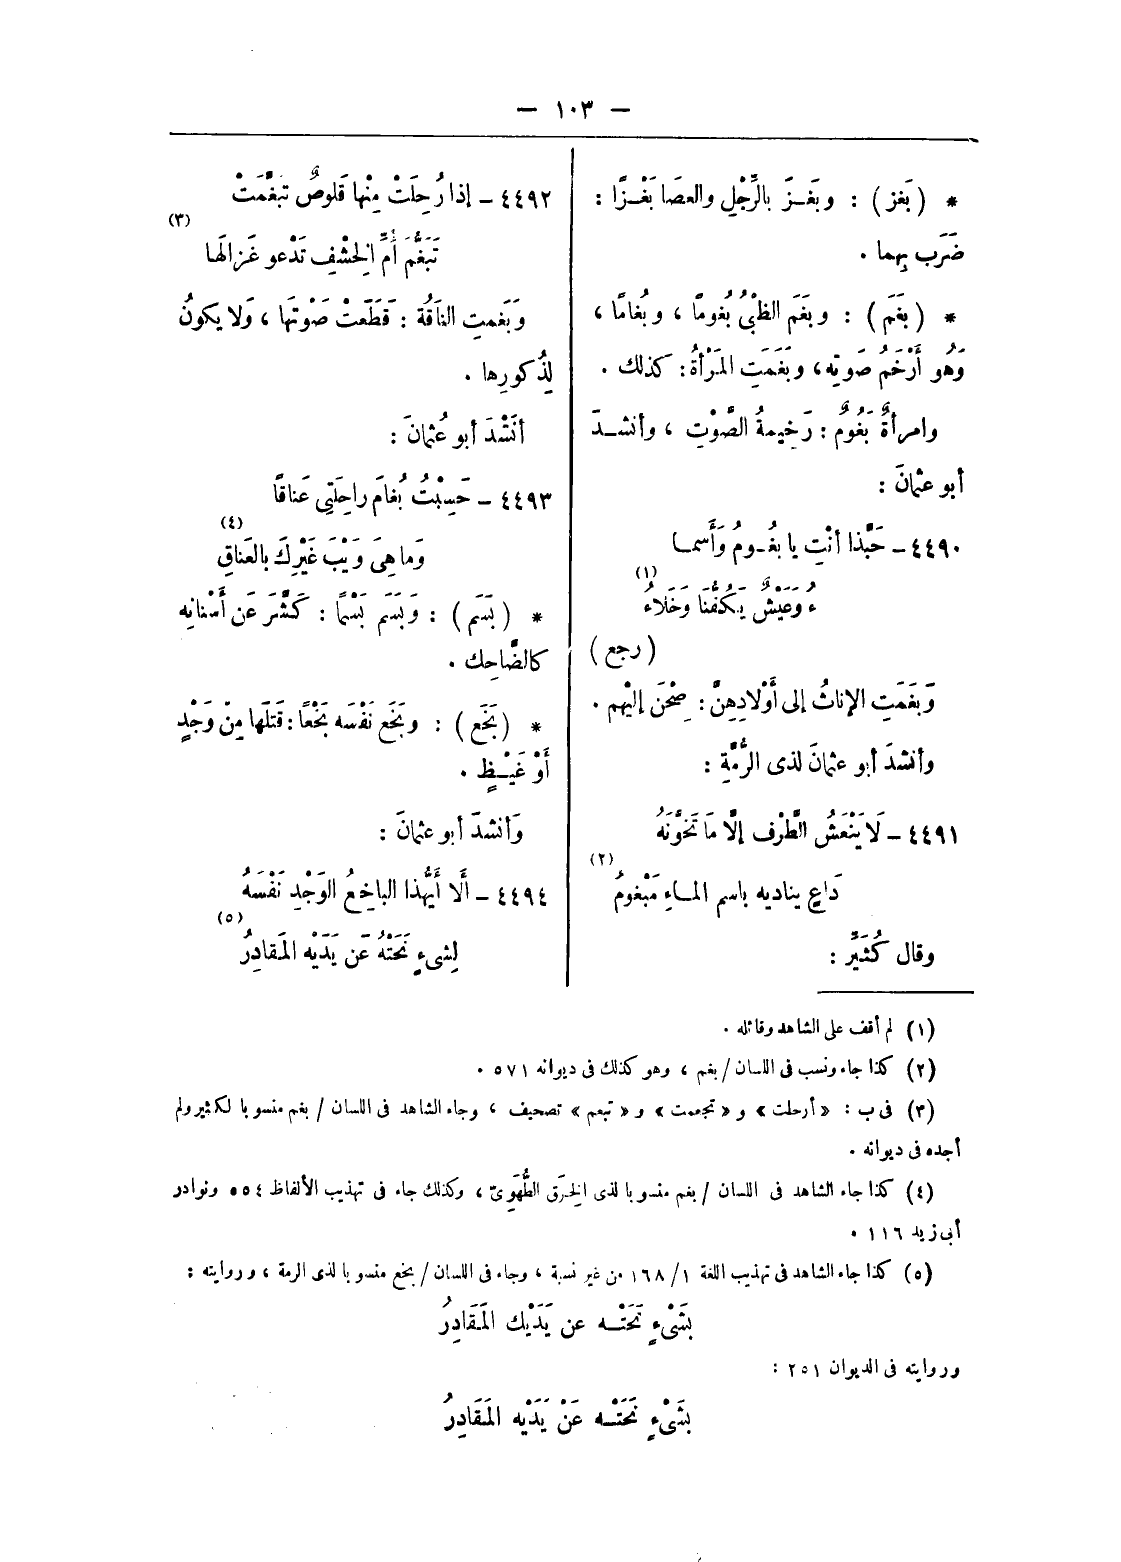 — ١٠٣ —
* ( بَغز ) : وبَغـزَ بالرِّجْلِ والعصَا بَغْـزًا :
ضَرَب بِهما .
* ( بغَم ) : وبغَم الظبْىُ بُغومًا ، وبُغامًا ،
وَهُو أَرْخَمُ صَوتِه، وبَغَمَتِ المَرْأةُ: كذلك .
وامرأةٌ بَغُومٌ : رَخِيمةُ الصَّوْتِ ، وأنشـدَ
أبو عثمانَ :
٤٤٩٠ــ حَبَّذا أنْتِ يا بغُـومُ وَأَسمـا
ءُ وَعَيْشٌ يَكُفُّنَا وَخَلاءُ (١)
( رجع )
وَبغَمَتِ الإناثُ إلى أَوْلادِهِنَّ : صِحْنَ إليْهم .
وأنشدَ أبو عثمانَ لذى الرُّمَّةِ :
٤٤٩١ــ لَا يَنْعَشُ الطَّرْف إلَّا مَا تَخَوَّنَهُ
دَاعٍ يناديه باسم المـاءِ مَبْغومُ (٢)
وقال كُثَيِّر :
٤٤٩٢ــ إذا رُحِلَتْ مِنْها قَلوصٌ تبَغَّمَتْ
تَبَغُّمَ أُمِّ الخِشْفِ تَدْعو غَزالَها (٣)
وَبَغَمتِ النَاقُة : قَطَّعتْ صَوْتَها ، وَلا يكونُ
لِذُكورِها .
أنَشْدَ أبو عُثمانَ :
٤٤٩٣ــ حَسِبْتُ بُغامَ راحِلَتِى عَناقًا
وَما هِىَ وَيْبَ غَيْرِكَ بالعَناقِ (٤)
* ( بَسَم ) : وَبَسَم بَسْمًا : كَشَّرَ عَن أَسْنانِه
كالضَّاحِك .
* ( بَخَع ) : وبَخَع نَفْسَه بَخْعًا : قَتَلَها مِنْ وَجْدٍ
أَوْ غَيـظٍ .
وَأنشدَ أبو عثمانَ :
٤٤٩٤ــ أَلَا أَيُّهذا الباخِعُ الوَجْدِ نَفْسَهُ
لِشىءٍ نَحَتْهُ عَن يَدَيْه المَقادِرُ (٥)
(١) لم أقف على الشاهد وقائله .
(٢) كذا جاء ونسب فى اللسان / بغم ، وهو كذلك فى ديوانه ٥٧١ .
(٣) فى ب : «أرحلت» و «تجعمت» و «تبعم» تصحيف ، وجاء الشاهد فى اللسان / بغم منسوبا لكثير ولم
أجده فى ديوانه .
(٤) كذا جاء الشاهد فى اللسان / بغم منسوبا لذى الخِرَق الطُّهَوِىّ ، وكذلك جاء فى تهذيب الألفاظ ٥٥٤ ونوادر
أبى زيد ١١٦ .
(٥) كذا جاء الشاهد فى تهذيب اللغة ١/ ١٦٨ من غير نسبة ، وجاء فى اللسان / بخع منسوبا لذى الرمة ، وروايته :
بشَىْءٍ نَحَتْـه عن يَدَيْك المَقَادِرُ
وروايته فى الديوان ٢٥١ :
بشَىْءٍ نَحَتْـه عَنْ يَدَيْه المَقَادِرُ